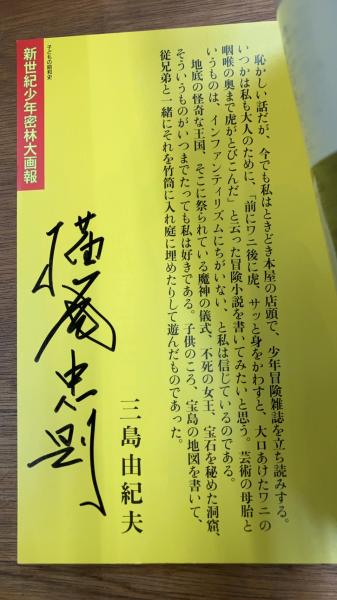 恥かしい話だが、今でも私はときどき本屋の店頭で、少年冒険雑誌を立ち読みする。
いつかは私も大人のために、「前にワニ後に虎、サッと身をかわすと、大口あけたワニの
咽喉の奥まで虎がとびこんだ」と云った冒険小説を書いてみたいと思う。芸術の母胎と
いうものは、インファンティリズムにちがいない、と私は信じているのである。
地底の怪奇な王国、そこに祭られている魔神の儀式、不死の女王、宝石を秘めた洞窟、
そういうものがいつまでたっても私は好きである。子供のころ、宝島の地図を書いて、
従兄弟と一緒にそれを竹筒に入れ庭に埋めたりして遊んだものであった。
三島由紀夫
横尾忠則
子どもの昭和史
新世紀少年密林大画報